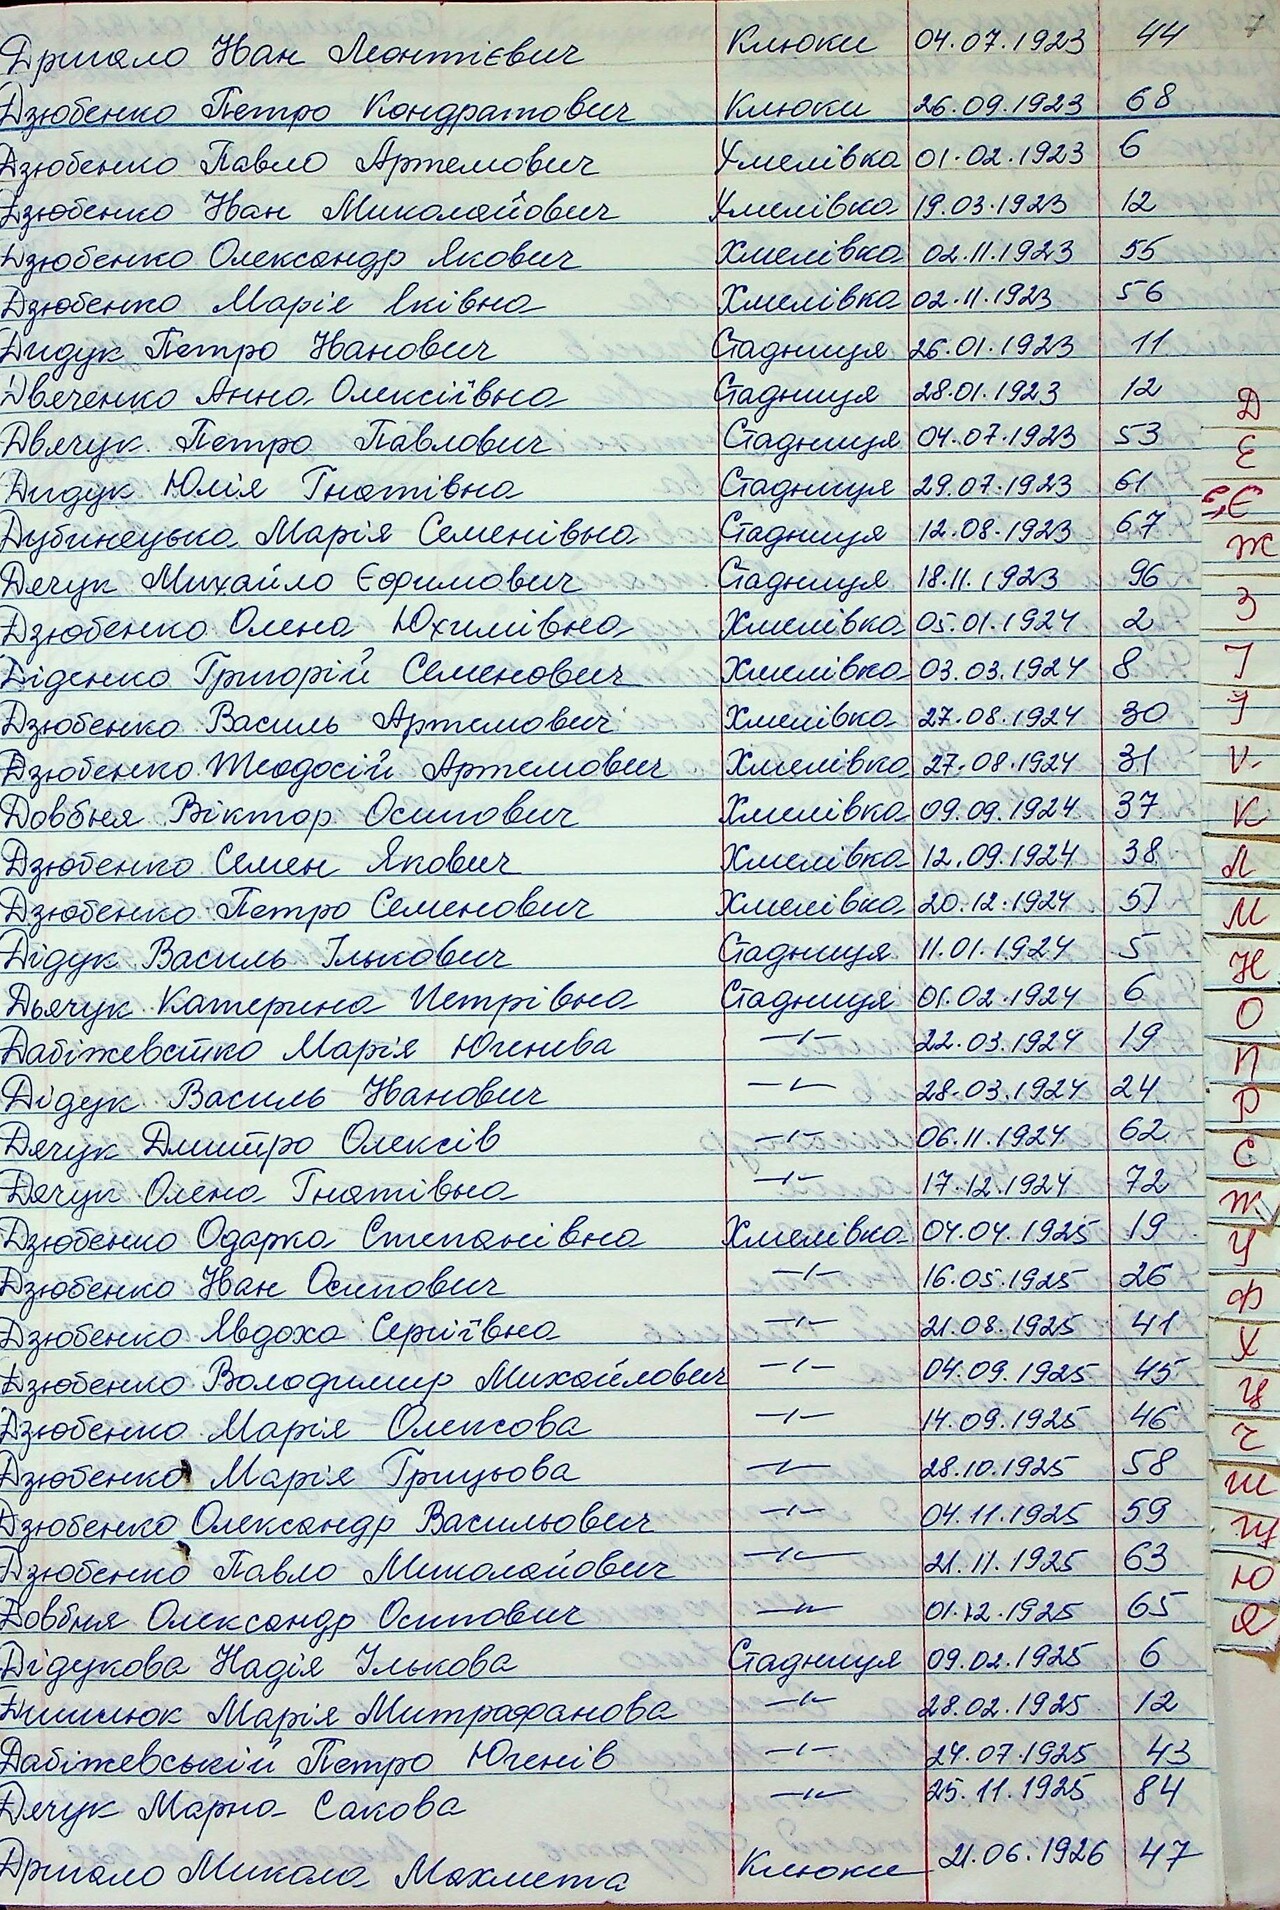 7
Дригало Іван Леонтієвич Клюки 04.07.1923 44
Дзюбенко Петро Кондратович Клюки 26.09.1923 68
Дзюбенко Павло Артемович Хмелівка 01.02.1923 6
Дзюбенко Іван Миколайович Хмелівка 19.03.1923 12
Дзюбенко Олександр Якович Хмелівка 02.11.1923 55
Дзюбенко Марія Яківна Хмелівка 02.11.1923 56
Дидук Петро Іванович Стадниця 26.01.1923 11
Двяченко Анна Олексіївна Стадниця 28.01.1923 12
Двячук Петро Павлович Стадниця 04.07.1923 53
Дидук Юлія Гнатівна Стадниця 29.07.1923 61
Дубинецька Марія Семенівна Стадниця 12.08.1923 67
Дячук Михайло Єфимович Стадниця 18.11.1923 96
Дзюбенко Олена Юхимівна Хмелівка 05.01.1924 2
Діденко Григорій Семенович Хмелівка 03.03.1924 8
Дзюбенко Василь Артемович Хмелівка 27.08.1924 30
Дзюбенко Теодосій Артемович Хмелівка 27.08.1924 31
Довбня Віктор Осипович Хмелівка 09.09.1924 37
Дзюбенко Семен Якович Хмелівка 12.09.1924 38
Дзюбенко Петро Семенович Хмелівка 20.12.1924 51
Дідук Василь Ількович Стадниця 11.01.1924 5
Дьячук Катерина Петрівна Стадниця 01.02.1924 6
Марія Югенева —"— 22.03.1924 19
Дідук Василь Іванович —"— 28.03.1924 24
Дячук Дмитро Олексів —"— 06.11.1924 62
Дячук Олена Гнатівна —"— 17.12.1924 72
Дзюбенко Одарка Степанівна Хмелівка 04.04.1925 19
Дзюбенко Іван Осипович —"— 16.05.1925 26
Дзюбенко Явдоха Сергіївна —"— 21.08.1925 41
Дзюбенко Володимир Михайлович —"— 04.09.1925 45
Дзюбенко Марія Олексова —"— 14.09.1925 46
Дзюбенко Марія Грицьова —"— 28.10.1925 58
Дзюбенко Олександр Васильович —"— 04.11.1925 59
Дзюбенко Павло Миколайович —"— 21.11.1925 63
Довбня Олександр Осипович —"— 01.12.1925 65
Дідукова Надія Ількова Стадниця 09.02.1925 6
Марія Митрафанова —"— 28.02.1925 12
Дабіжевській Петро Югенів —"— 24.07.1925 43
Дячук Марна Сакова —"— 25.11.1925 84
Дригало Микола Клюки 21.06.1926 47
Д
Е
Є
Ж
З
І
Ї
К
Л
М
Н
О
П
Р
С
Т
У
Ф
Х
Ц
Ч
Ш
Щ
Ю
Я